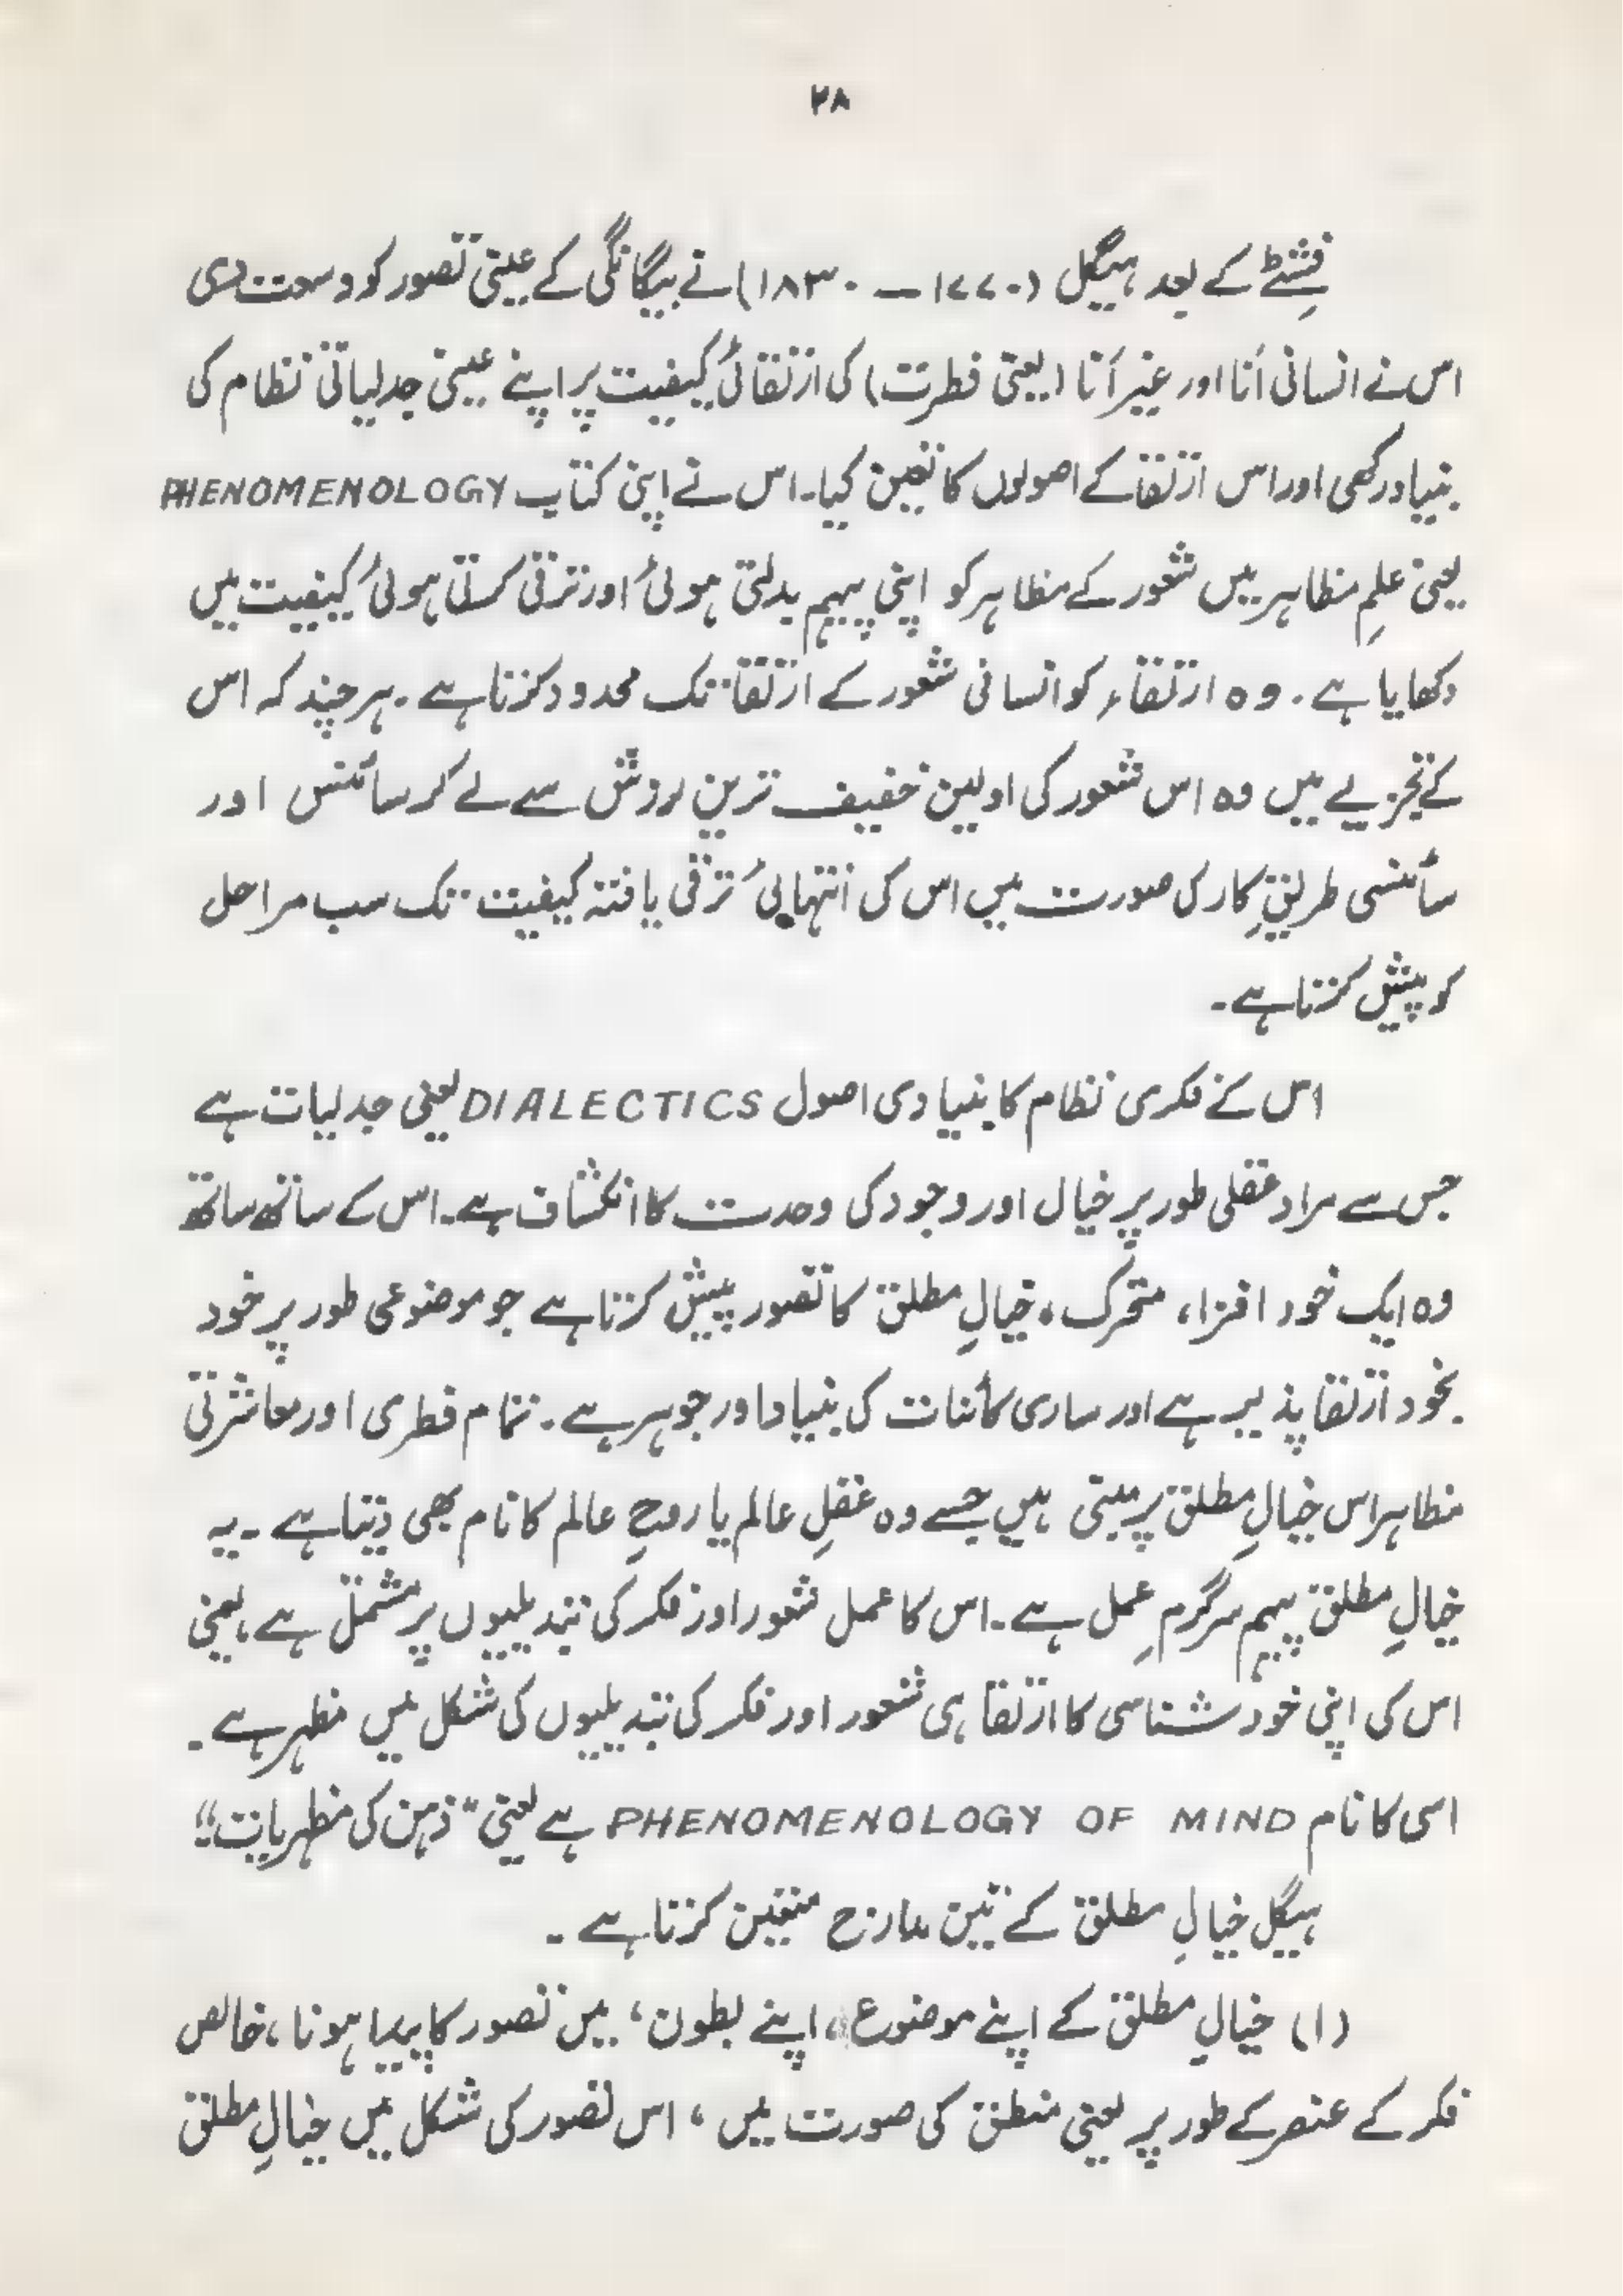 ۲۸
فِشٹے کے بعد ہیگل (۱۷۷۰ — ۱۸۳۰) نے بیگانگی کے عینی تصور کو وسعت دی
اس نے انسانی اَنا اور غیر اَنا (یعنی فطرت) کی ارتقائی کیفیت پر اپنے عینی جدلیاتی نظام کی
بنیاد رکھی اور اس ارتقا کے اصولوں کا تعین کیا۔ اس نے اپنی کتاب PHENOMENOLOGY
یعنی علمِ مظاہر میں شعور کے مظاہر کو اپنی پیہم بدلتی ہوئی اور ترقی کرتی ہوئی کیفیت میں
دکھایا ہے۔ وہ ارتقاء کو انسانی شعور کے ارتقا تک محدود کرتا ہے۔ ہر چند کہ اس
کے تجزیے میں وہ اس شعور کی اولین خفیف ترین لرزش سے لے کر سائنس اور
سائنسی طریقِ کار کی صورت میں اس کی انتہائی ترقی یافتہ کیفیت تک سب مراحل
کو پیش کرتا ہے۔
اس کے فکری نظام کا بنیادی اصول DIALECTICS یعنی جدلیات ہے
جس سے مراد عقلی طور پر خیال اور وجود کی وحدت کا انکشاف ہے۔ اس کے ساتھ ساتھ
وہ ایک خود افزا، متحرک، خیالِ مطلق کا تصور پیش کرتا ہے جو موضوعی طور پر خود
بخود ارتقا پذیر ہے اور ساری کائنات کی بنیاد اور جوہر ہے۔ تمام فطری اور معاشرتی
مظاہر اس خیالِ مطلق پر مبنی ہیں جسے وہ عقلِ عالم یا روحِ عالم کا نام بھی دیتا ہے۔ یہ
خیالِ مطلق پیہم سرگرمِ عمل ہے۔ اس کا عمل شعور اور فکر کی تبدیلیوں پر مشتمل ہے، یعنی
اس کی اپنی خود شناسی کا ارتقا ہی شعور اور فکر کی تبدیلیوں کی شکل میں مظہر ہے۔
اسی کا نام PHENOMENOLOGY OF MIND ہے یعنی "ذہن کی مظہریات"۔
ہیگل خیالِ مطلق کے تین مدارج متعین کرتا ہے۔
(۱) خیالِ مطلق کے اپنے موضوع، اپنے بطون، میں تصور کا پیدا ہونا، خالص
فکر کے عنصر کے طور پر یعنی منطق کی صورت میں، اس تصور کی شکل میں خیالِ مطلق